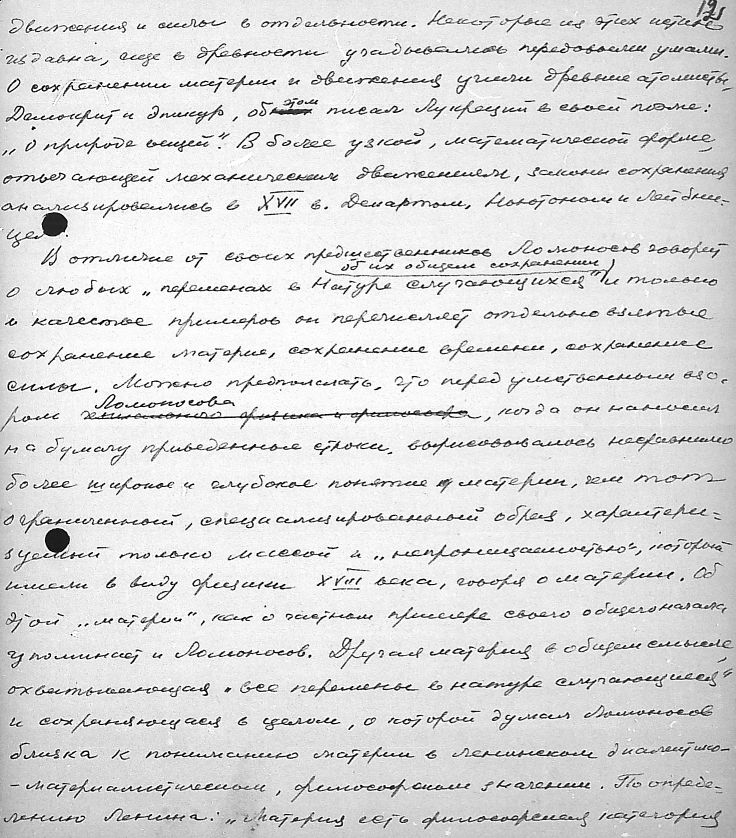 12
движения и силы в отдельности. Некоторые из этих истин
издавна, еще в древности угадывались передовыми умами.
О сохранении материи и движения учили древние атомисты,
Демокрит и Эпикур, об этом писал Лукреций в своей поэме:
„О природе вещей". В более узкой, математической форме,
отвечающей механическим движениям, законы сохранения
анализировались в XVII в. Декартом, Ньютоном и Лейбни-
цем.
В отличие от своих предшественников Ломоносов говорит
об их общем сохранении
о любых „переменах в Натуре случающихся" и только
в качестве примеров он перечисляет отдельно взятые
сохранение материи, сохранение времени, сохранение
силы. Можно предполагать, что перед умственным взо-
Ломоносова
ром химика физика и философа, когда он наносил
на бумагу приведенные строки, вырисовывалось несравнимо
более широкое и глубокое понятие материи, чем тот
ограниченный, специализированный образ, характери-
зуемый только массой и „непроницаемостью", который
имели в виду физики XVIII века, говоря о материи. Об
этой „материи", как о частном примере своего общего начала
упоминает и Ломоносов. Другая материя в общем смысле,
охватывающая „все перемены в натуре случающиеся"
и сохраняющаяся в целом, о которой думал Ломоносов
близка к пониманию материи в ленинском диалектико-
-материалистическом, философском значении. По опреде-
лению Ленина: „Материя есть философская категория